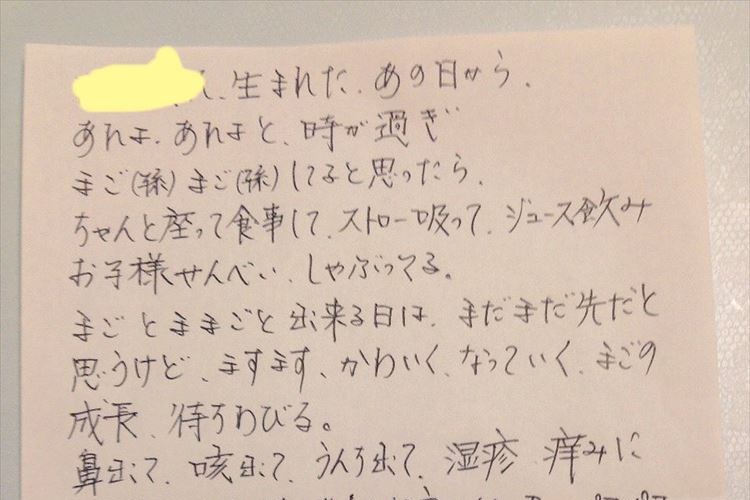 、生まれた、あの日から、
あれよ、あれよと、時が過ぎ
まご(孫)まご(孫)してると思ったら、
ちゃんと座って食事して、ストロー吸って、ジュース飲み
お子様せんべい、しゃぶってる。
まごとままごと出来る日は、まだまだ先だと
思うけど、ますます、かわいく、なっていく、まごの
成長、待ちわびる。
鼻出て、咳出て、うんち出て、湿疹、痒みに